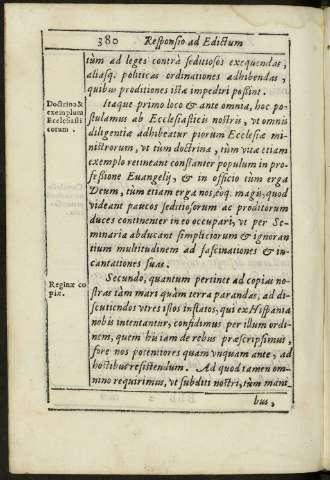 380 Responsio ad Edictum
tùm ad leges contrà seditiosos exequendas,
aliasq. politicas ordinationes adhibendas,
quibus proditiones istæ impediri possint.
Doctrina &
exemplum
Ecclesiasti
corum.
Itaque primo loco & ante omnia, hoc po-
stulamus ab Ecclesiasticis nostris, vt omnis
diligentia adhibeatur piorum Ecclesiæ mi-
nistrorum, vt tùm doctrina, tùm vita etiam
exemplo retineant constanter populum in pro-
fessione Euangelij, & in officio tùm erga
Deum, tùm etiam erga nos, eoq. magis, quod
videant paucos seditiosorum ac proditorum
duces continenter in eo occupari, vt per Se-
minaria abducant simpliciorum & ignoran
tium multitudinem ad fascinationes & in-
cantationes suas.
Reginæ co
piæ.
Secundo, quantum pertinet ad copias no-
stras tàm mari quàm terra parandas, ad di-
scutiendos vtres istos inflatos, qui ex Hispania
nobis intentantur, confidimus per illum ordi-
nem, quem his iam de rebus præscripsimus,
fore nos potentores quam vnquam ante, ad
hostibus resistendum. Ad quod tamen om-
nino requirimus, vt subditi nostri, tùm mani
bus,